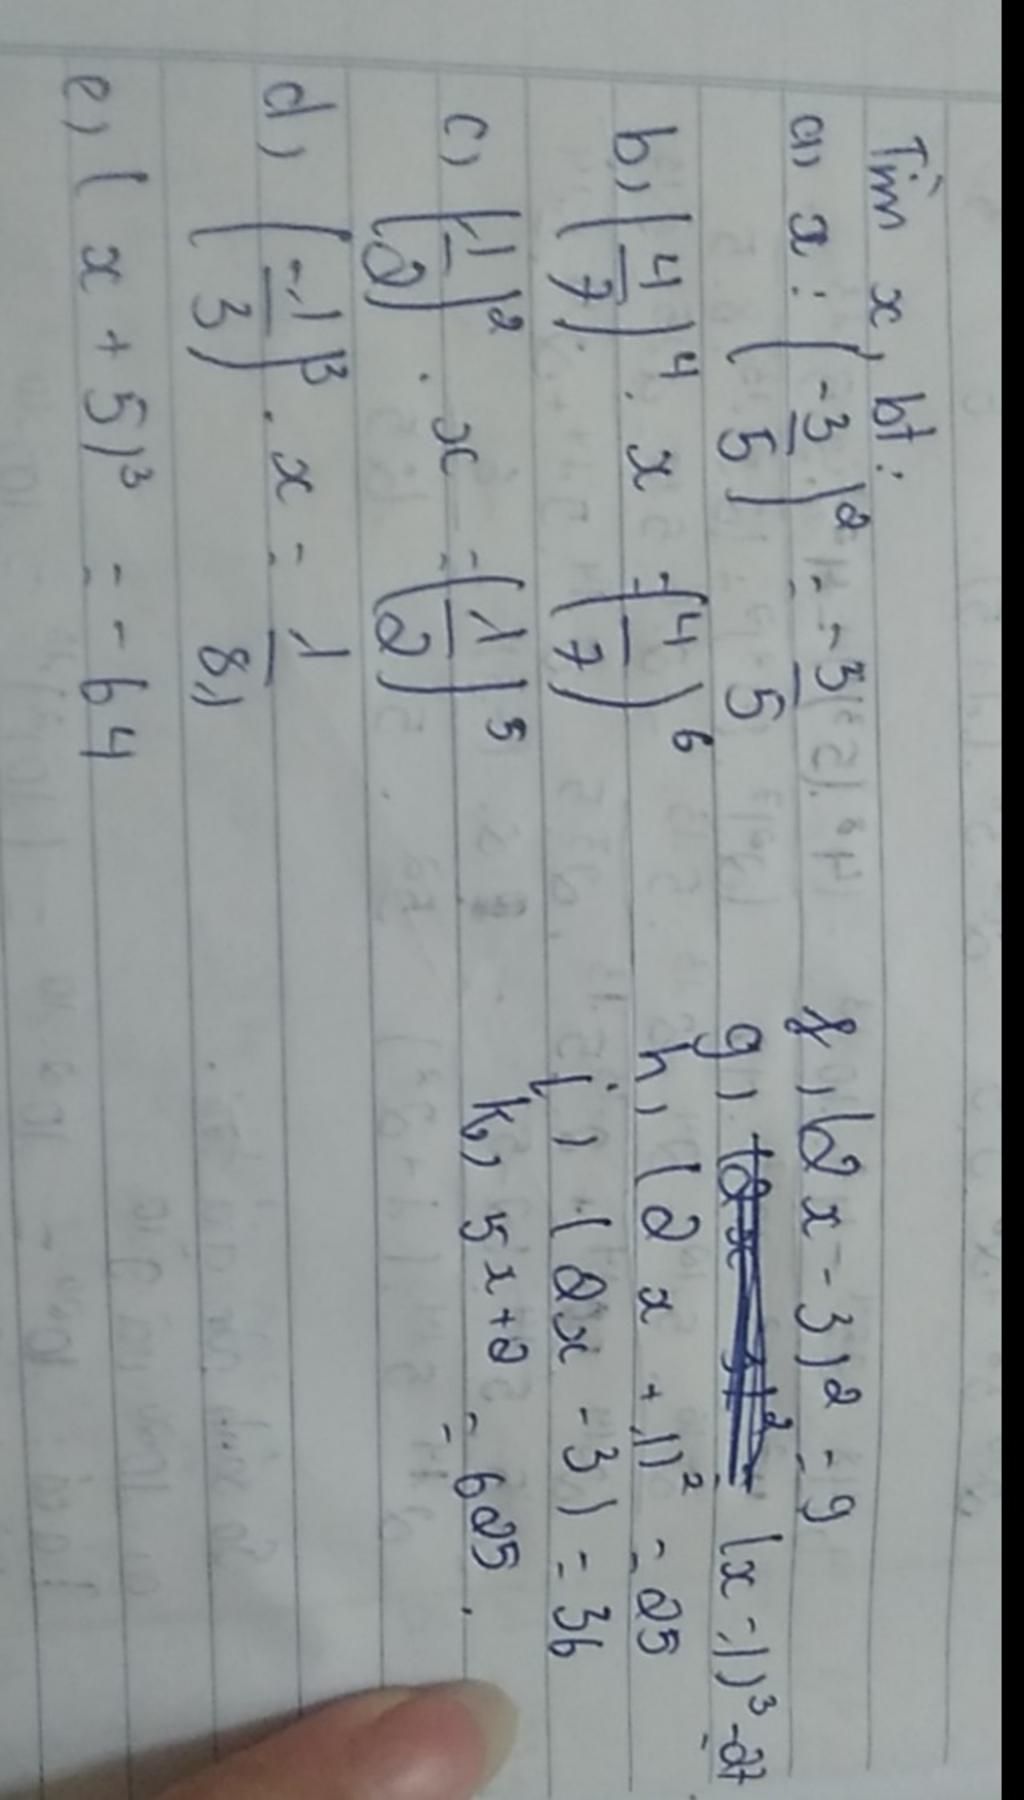 Tìm x, bt:
a, x : (-3/5)² = -3/5
b, (4/7)⁴ . x = (4/7)⁶
c, (-1/2)² . x = (1/2)⁵
d, (-1/3)³ . x = 1/8,)
e, (x + 5)³ = -64
f, (2x - 3)2 = 9
g, (x - 1)³ = 27
h, (2x + 1)² = 25
i, (2x - 3) = 36
k, 5x+2 = 625.